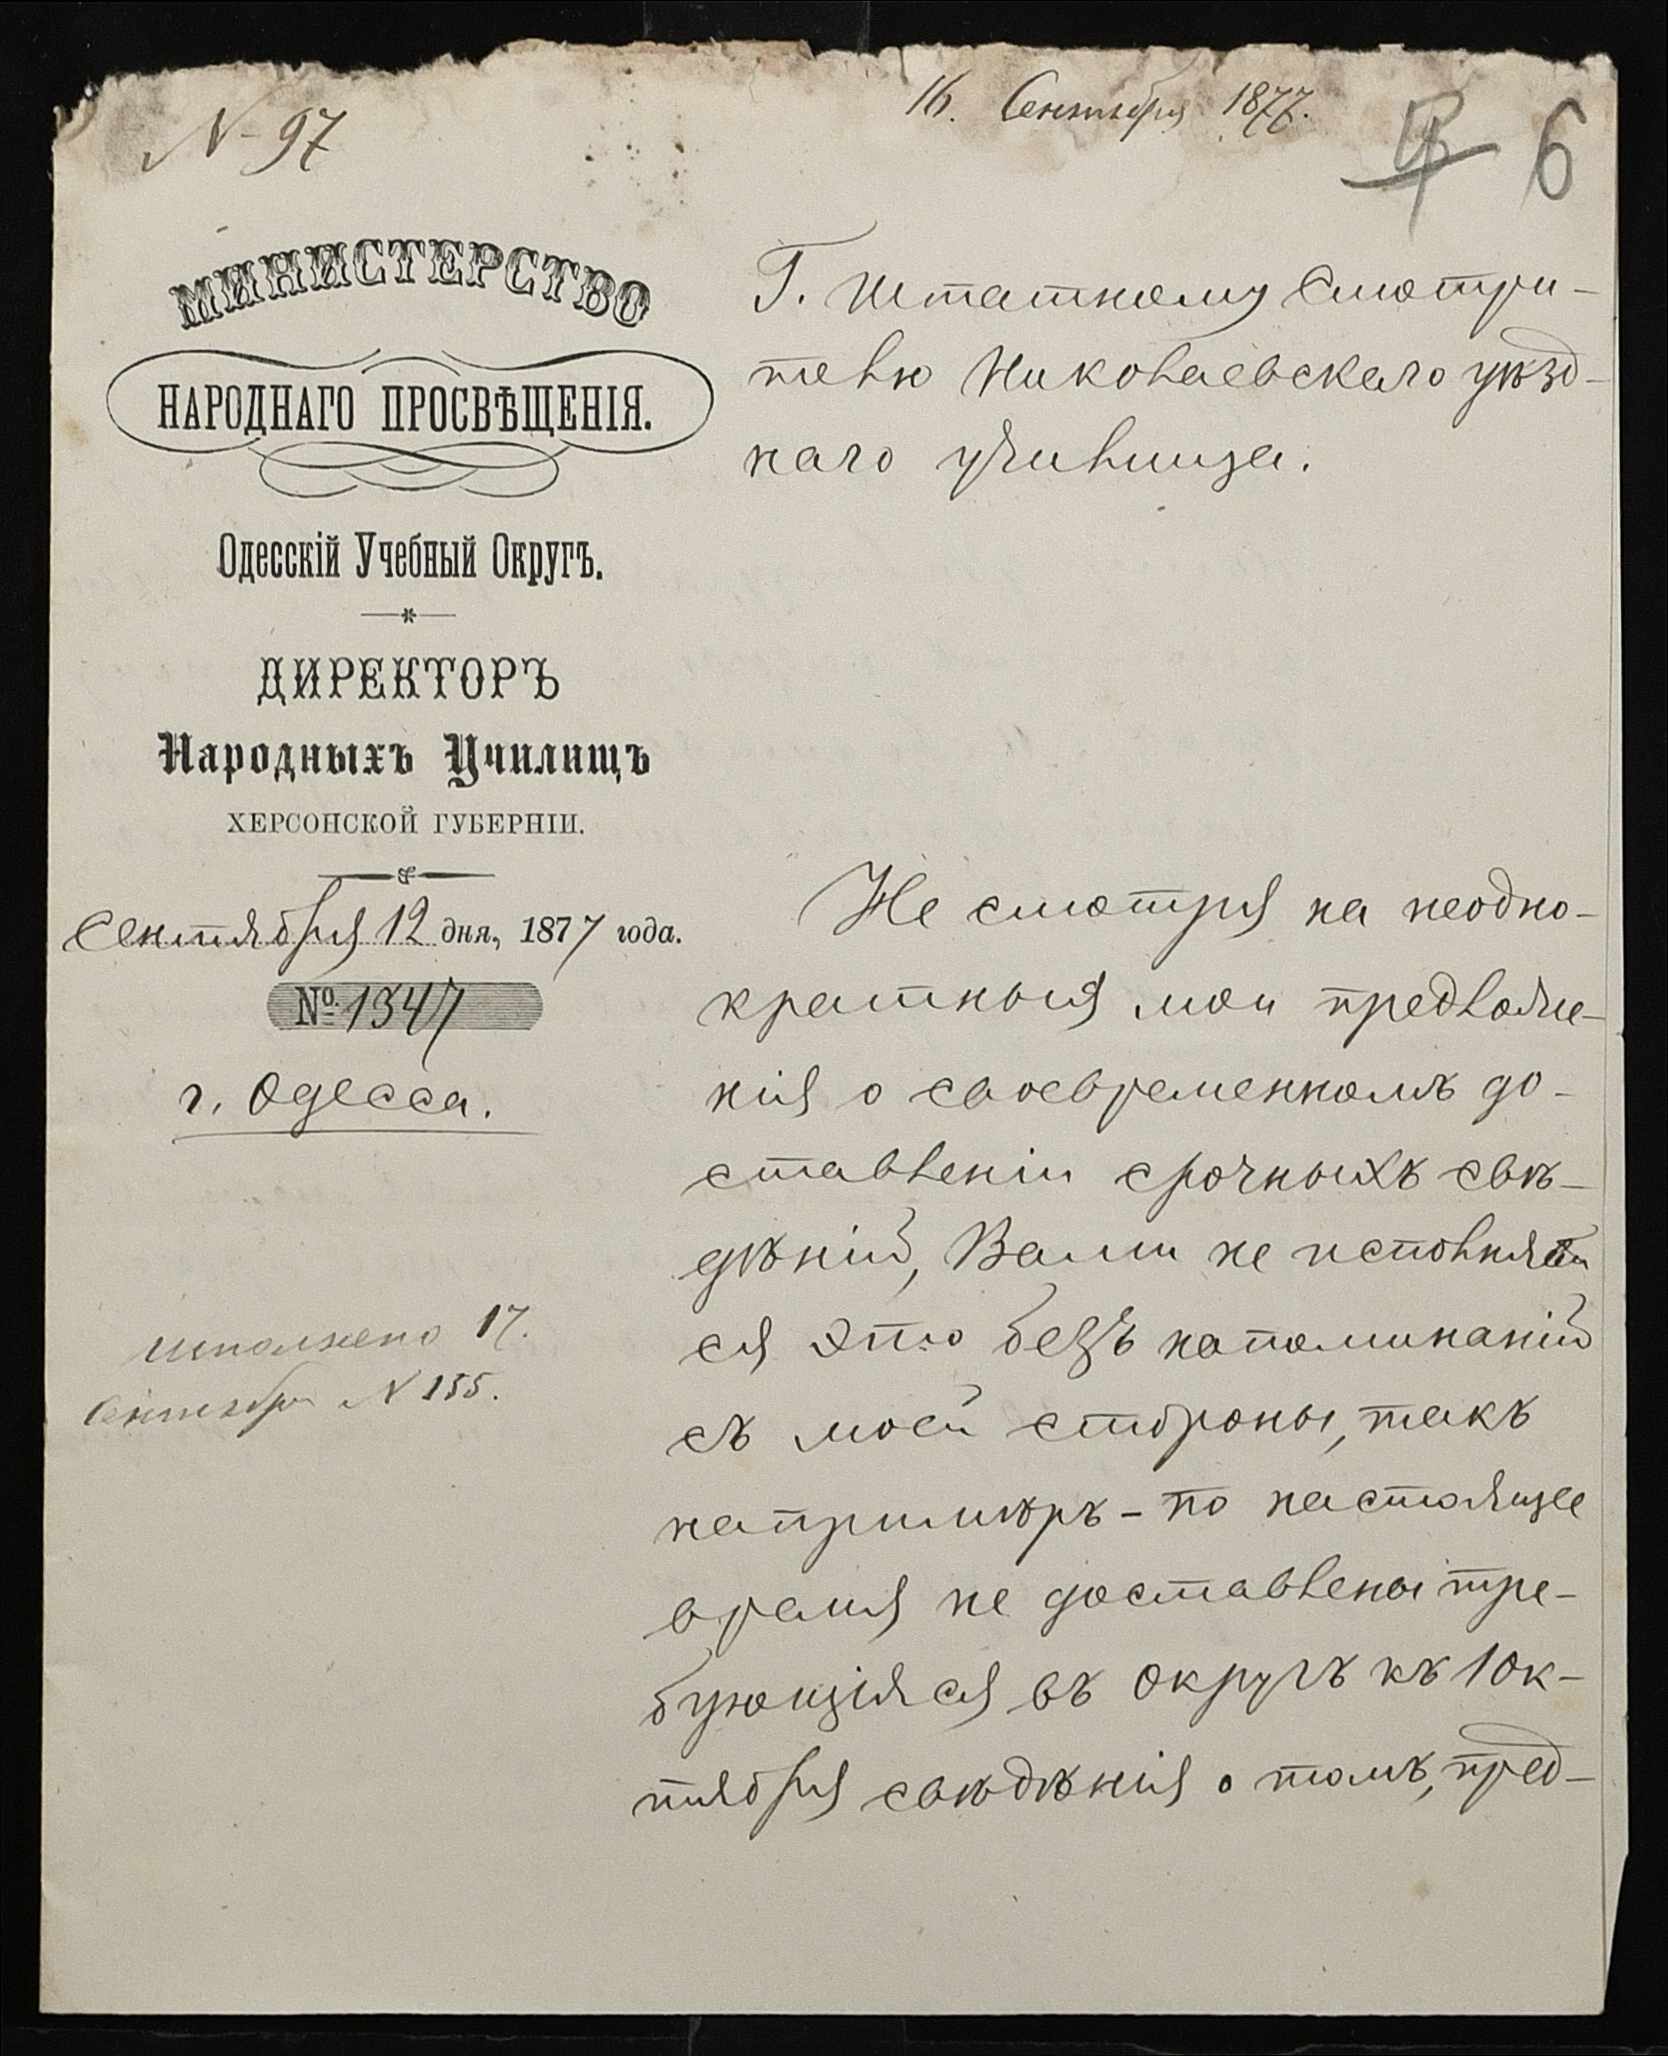 N 97
16. Сентября 1877.
6
МИНИСТЕРСТВО
НАРОДНАГО ПРОСВѢЩЕНІЯ.
Одесскій Учебный Округъ.
ДИРЕКТОРЪ
Народныхъ Училищъ
ХЕРСОНСКОЙ ГУБЕРНІИ.
Сентября 12 дня, 1877 года.
№ 1347
г. Одесса.
Исполнено 17.
Сентября N 155.
Г. Штатному Смотри-
телю Николаевскаго уѣзд-
наго училища.
Не смотря на неодно-
кратныя мои предложе-
нія о своевременномъ до-
ставленіи срочныхъ свѣ-
дѣній, Вами не исполняет
ся это безъ напоминаній
съ моей стороны, такъ
напримѣръ - по настоящее
время не доставлены тре-
бующіяся въ Округъ къ 1 Ок-
тября свѣдѣнія о томъ, пред-